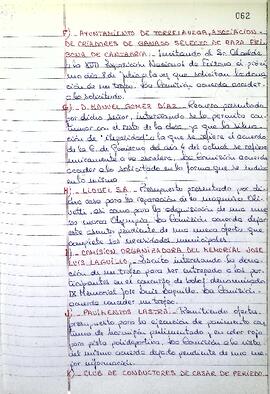 062
F) - AYUNTAMIENTO DE TORRELAVEGA, ASOCIACION
DE CRIADORES DE GANADO SELECTO DE RAZA FRI
SONA DE CANTABRIA.- invitando al Sr. Alcalde
a la XVII Exposición Nacional de Frisona el próxi
mo día 8 de julio, a la vez que solicitan la dona
ción de un trofeo. La Comisión acuerda acceder
a lo solicitado.
G) - D. MANUEL GOMEZ DIAZ.- Recurso presentado
por dicho señor, interesando se le permita
continuar con el resto de la obra, ya que la
de la C. de Gobierno del día 4 del actual se refiere
únicamente a su escalera. La Comisión acuerda
acceder a lo solicitado en la forma que se indica
en la misma
H) - LIOBEL S.A.- Presupuesto presentado por di
cha casa para la reparación de la maquina Oli
vetti así como para la adquisición de una nue
va marca Olympia. La Comisión acuerda dejar
este asunto pendiente de una nueva oferta que
complete las necesidades municipales.
I) - COMISION ORGANIZADORA DEL MEMORIAL JOSE
LUIS LAGUILLO.- Escrito interesando la dona
ción de un trofeo para ser entregado a los par
ticipantes en el concurso de bolos denominado
IX Memorial José Luis Laguillo. La Comisión
acuerda conceder un trofeo.
J) - PAVIMENTOS LASTRA.- Remitiendo oferta
presupuesto para la ejecución de pavimento con
tinuo de hormigón pulimentado, en color rojo
para pista polideportiva. La Comisión a la vista
del mismo acuerda dejarlo pendiente de una ma
yor información.
K) - CLUB DE CONDUCTORES DE CABAR DE PERIEDO.-